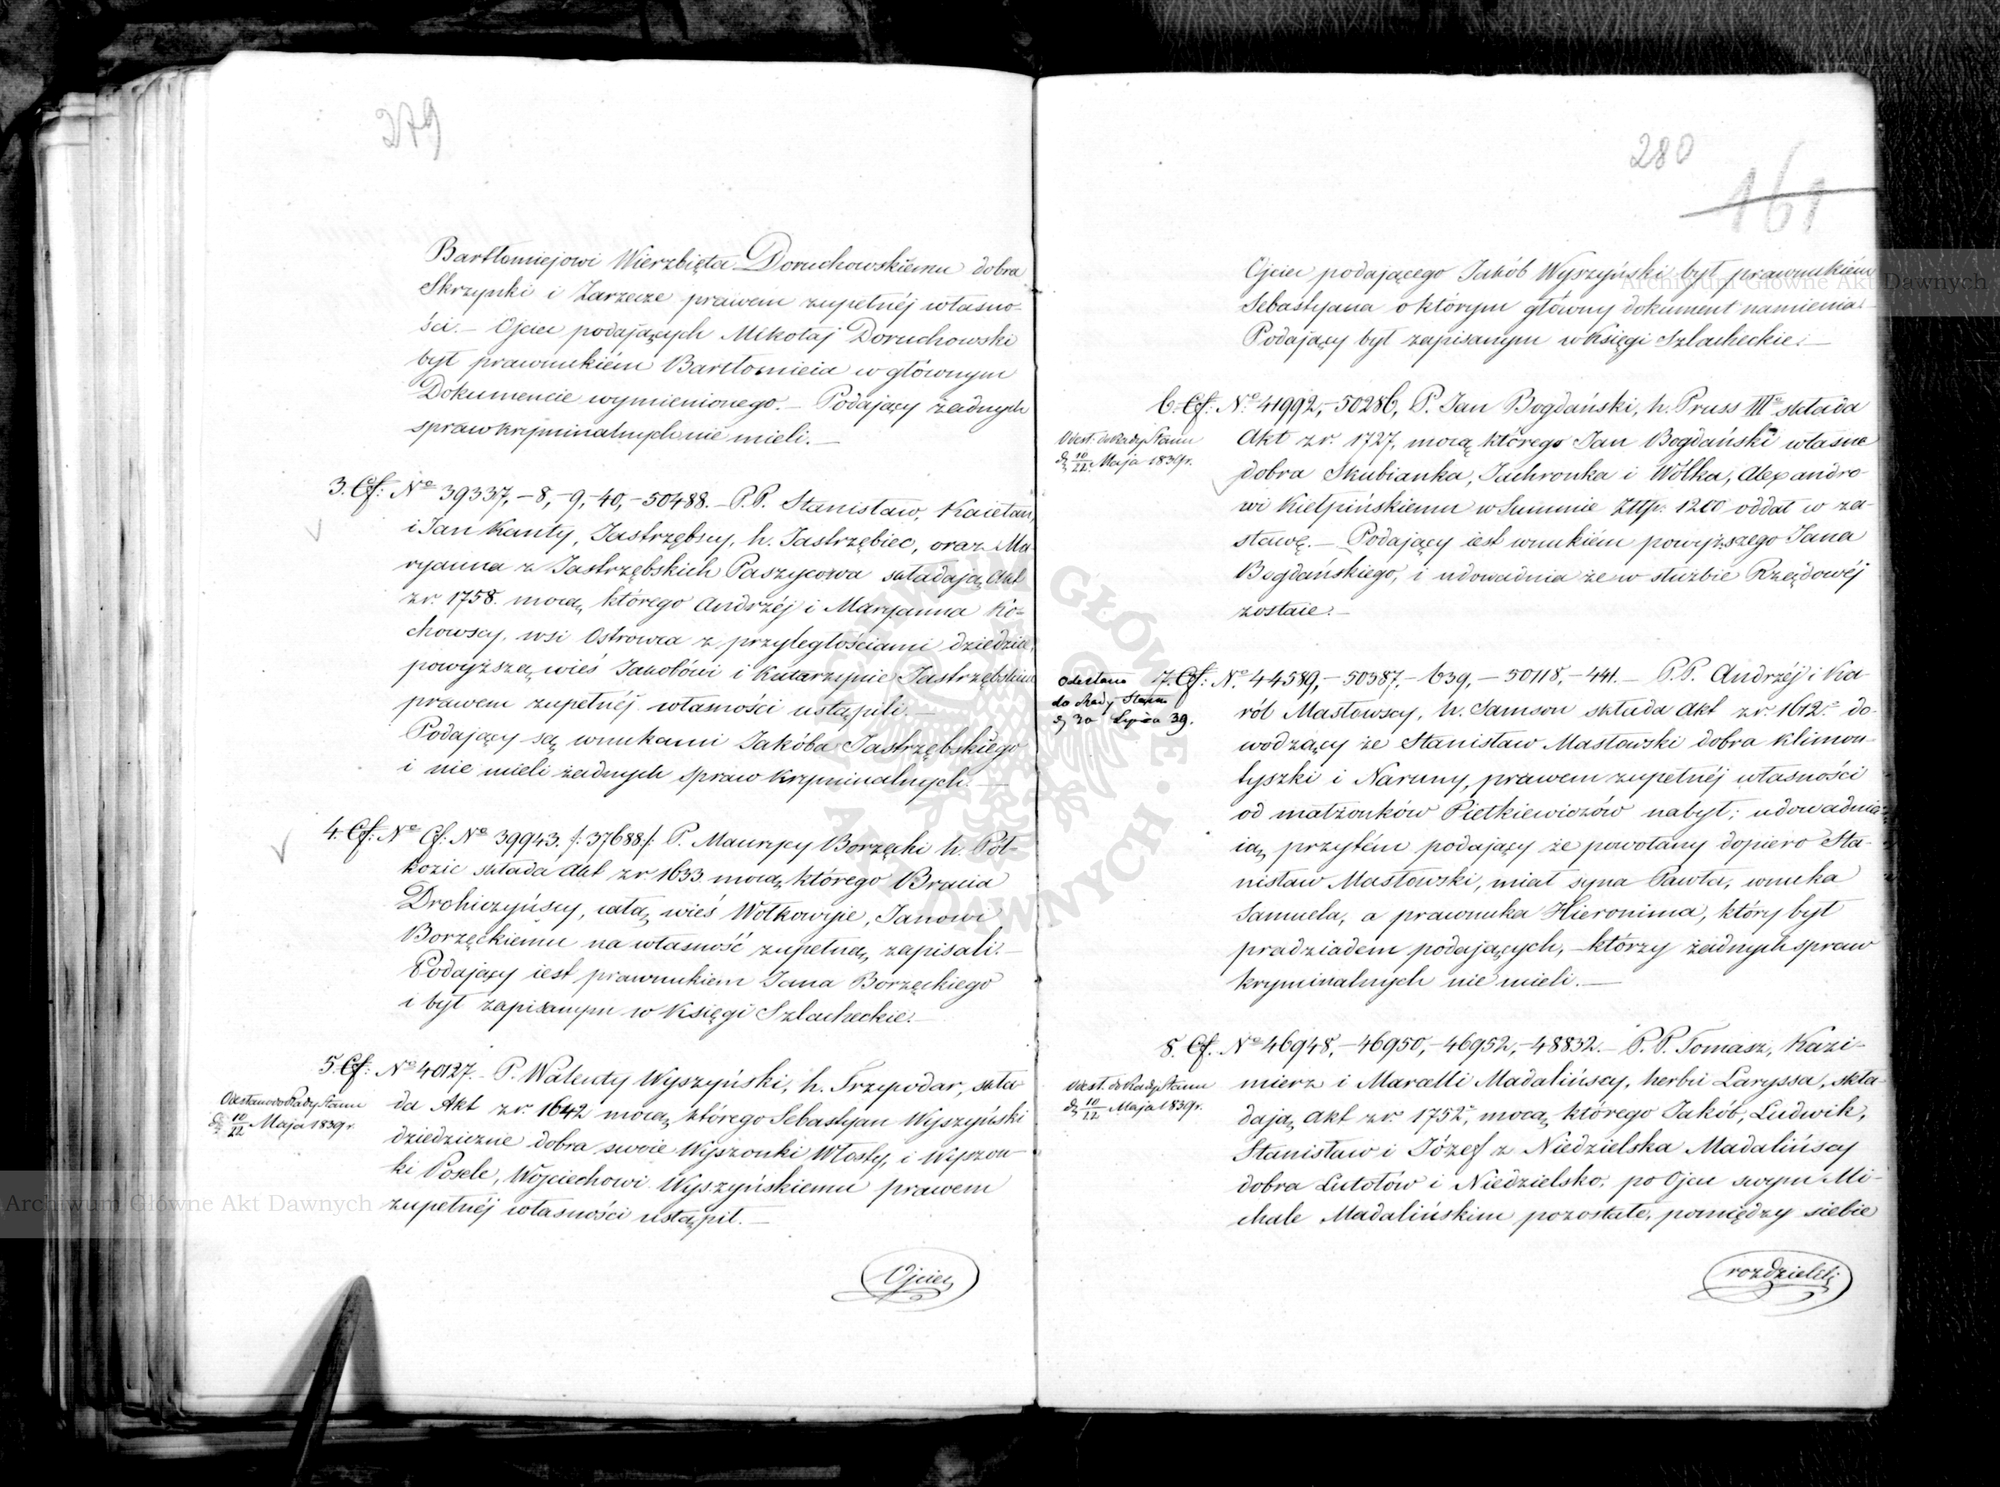 279
Bartłomiejowi Wierzbięta Doruchowskiemu dobra
Skrzynki i Zarzecze prawem zupełnéj własno-
ści. – Ojciec podających Mikołaj Doruchowski
był prawnukiém Bartłomieia w głównym
Dokumencie wymienionego. – Podający żadnych
spraw kryminalnych nie mieli. –
3. Cf: No 39337, – 8, – 9, – 40, – 50488. – P.P. Stanisław, Kaietan,
i Jan Kanty, Jastrzębscy, h. Jastrzębiec, oraz Ma-
ryanna z Jastrzębskich Paszycowa składają Akt
zr. 1758. mocą którego Andrzéj i Maryanna Ko-
chowscy, wsi Ostrowca z przyległościami dziedzice,
powyższą wieś Jakobówi i Katarzynie Jastrzębskim
prawem zupełnéj własności ustąpili. –
Podający są wnukami Jakóba Jastrzębskiego
i nie mieli żadnych spraw kryminalnych. –
4. Cf: No Cf: No 39943. /: 37688 /: P. Maurycy Borzęcki h. Pół-
kozic składa Akt zr. 1633. mocą którego Bracia
Drohiczyńscy, całą wieś Wołkowyie, Janowi
Borzęckiemu na własność zupełną zapisali. –
Podający iest prawnukiem Jana Borzęckiego
i był zapisanym w Księgi Szlacheckie. –
5. Cf: No 40127. – P. Walenty Wyszyński, h. Trzywdar, skła-
da Akt zr. 1642 mocą którego Sebastyan Wyszyński
dziedziczne dobra swoie Wyszonki Włosty, i Wyszon-
ki Posele, Woyciechowi Wyszyńskiemu prawem
zupełnéj własności ustąpił. –
Odesłano do Rady Stanu
d. 10/22 Maja 1839 r.
Ojciec
280
161
Ojciec podającego Jakób Wyszyński był prawnukiém
Sebastyana o którym główny dokument namienia.
Podający był zapisanym w Księgi Szlacheckie. –
6. Cf: No 41992, – 50286, P. Jan Bogdański, h. Pruss IIIo składa
Akt zr. 1727, mocą którego Jan Bogdański własne
dobra Skubianka, Jachronka i Wólka, Alexandro-
wi Kiełpińskiemu w Summie Złtp. 1200 oddał w za-
stawę. – Podający iest wnukiém powyższego Jana
Bogdańskiego, i udowadnia że w służbie Rządowéj
zostaie. –
Odest. do Rady Stanu
d. 10/22 Maja 1839 r.
7. Cf: No 44589, – 50387, – 639, – 50118, – 441. – P.P. Andrzéj i Ka-
ról Masłowscy, h. Samson składa Akt zr. 1612. do-
wodzący że Stanisław Masłowski dobra Klimon-
tyszki i Naruny, prawem zupełnéj własności
od małżonków Pietkiewiczów nabył; udowadnia-
ią przytém podający że powołany dopiero Sta-
nisław Masłowski, miał syna Pawła, wnuka
Samuela, a prawnuka Hieronima, który był
pradziadem podających, – którzy żadnych spraw
kryminalnych nie mieli. –
Odesłano
do Rady Stanu
d. 30 Lipca 39.
8. Cf. No 46948, – 46950, – 46952, – 48832. – P.P. Tomasz, Kazi-
mierz i Marcelli Madalińscy, herbu Laryssa, skła-
dają Akt zr. 1752, mocą którego Jakób, Ludwik,
Stanisław i Józef z Niedzielska Madalińscy
dobra Lututów i Niedzielsko, po Ojcu swym Mi-
chale Madalińskim pozostałe, pomiędzy siebie
Odest. do Rady Stanu
d. 10/22 Maja 1839 r.
rozdzielili
Archiwum Główne Akt Dawnych
Archiwum Główne Akt Dawnych
ARCHIWUM GŁÓWNE AKT DAWNYCH